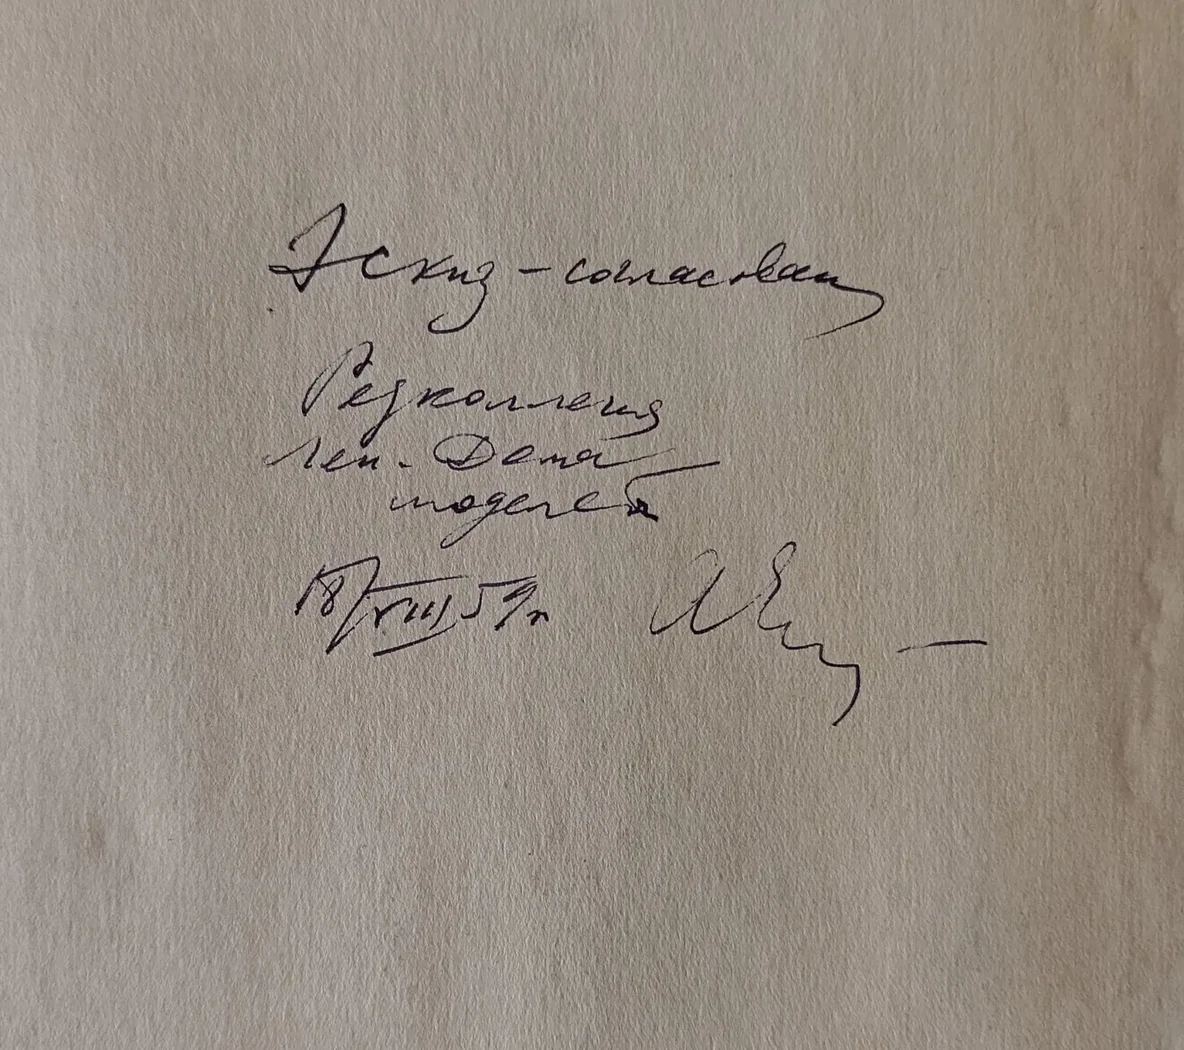 Эскиз - согласован
Редколлегия
Лен. Дома
моделей
18/VIII 59г